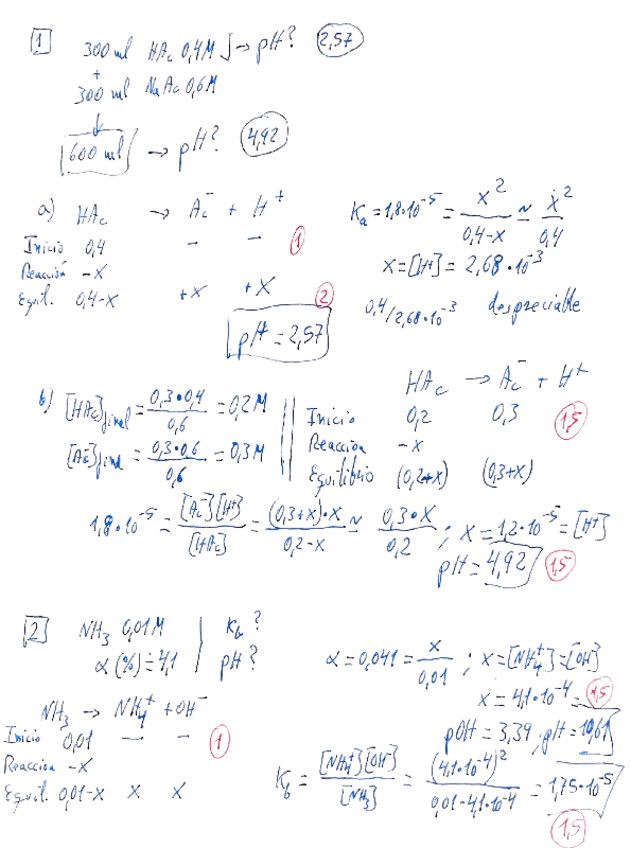 1 300 ml HAc 0,4M → pH? 2,57
+
300 ml NaAc 0,6M
↓
600 ml → pH? 4,92
a) HAc → Ac⁻ + H⁺
Inicio 0,4 — — 1
Reacción -x
Equil. 0,4-x +x +x 2
pH = 2,57
Ka = 1,8·10⁻⁵ = x²/(0,4-x) ≃ x²/0,4
x = [H⁺] = 2,68·10⁻³
0,4/2,68·10⁻³ despreciable
b) [HAc]final = (0,3·0,4)/0,6 = 0,2M
[Ac⁻]final = (0,3·0,6)/0,6 = 0,3M
HAc → Ac⁻ + H⁺
Inicio 0,2 0,3 1,5
Reaccion -x
Equilibrio (0,2-x) (0,3+x)
1,8·10⁻⁵ = [Ac⁻][H⁺]/[HAc] = (0,3+x)·x/(0,2-x) ≃ 0,3·x/0,2 ; x = 1,2·10⁻⁵ = [H⁺]
pH = 4,92 1,5
2 NH₃ 0,01M Kb?
α(%) = 4,1 pH?
NH₃ → NH₄⁺ + OH⁻
Inicio 0,01 — — 1
Reaccion -x
Equil. 0,01-x x x
α = 0,041 = x/0,01 ; x = [NH₄⁺] = [OH⁻]
x = 4,1·10⁻⁴ 1,5
pOH = 3,39 pH = 10,61
Kb = [NH₄⁺][OH⁻]/[NH₃] = (4,1·10⁻⁴)²/(0,01-4,1·10⁻⁴) = 1,75·10⁻⁵
1,5